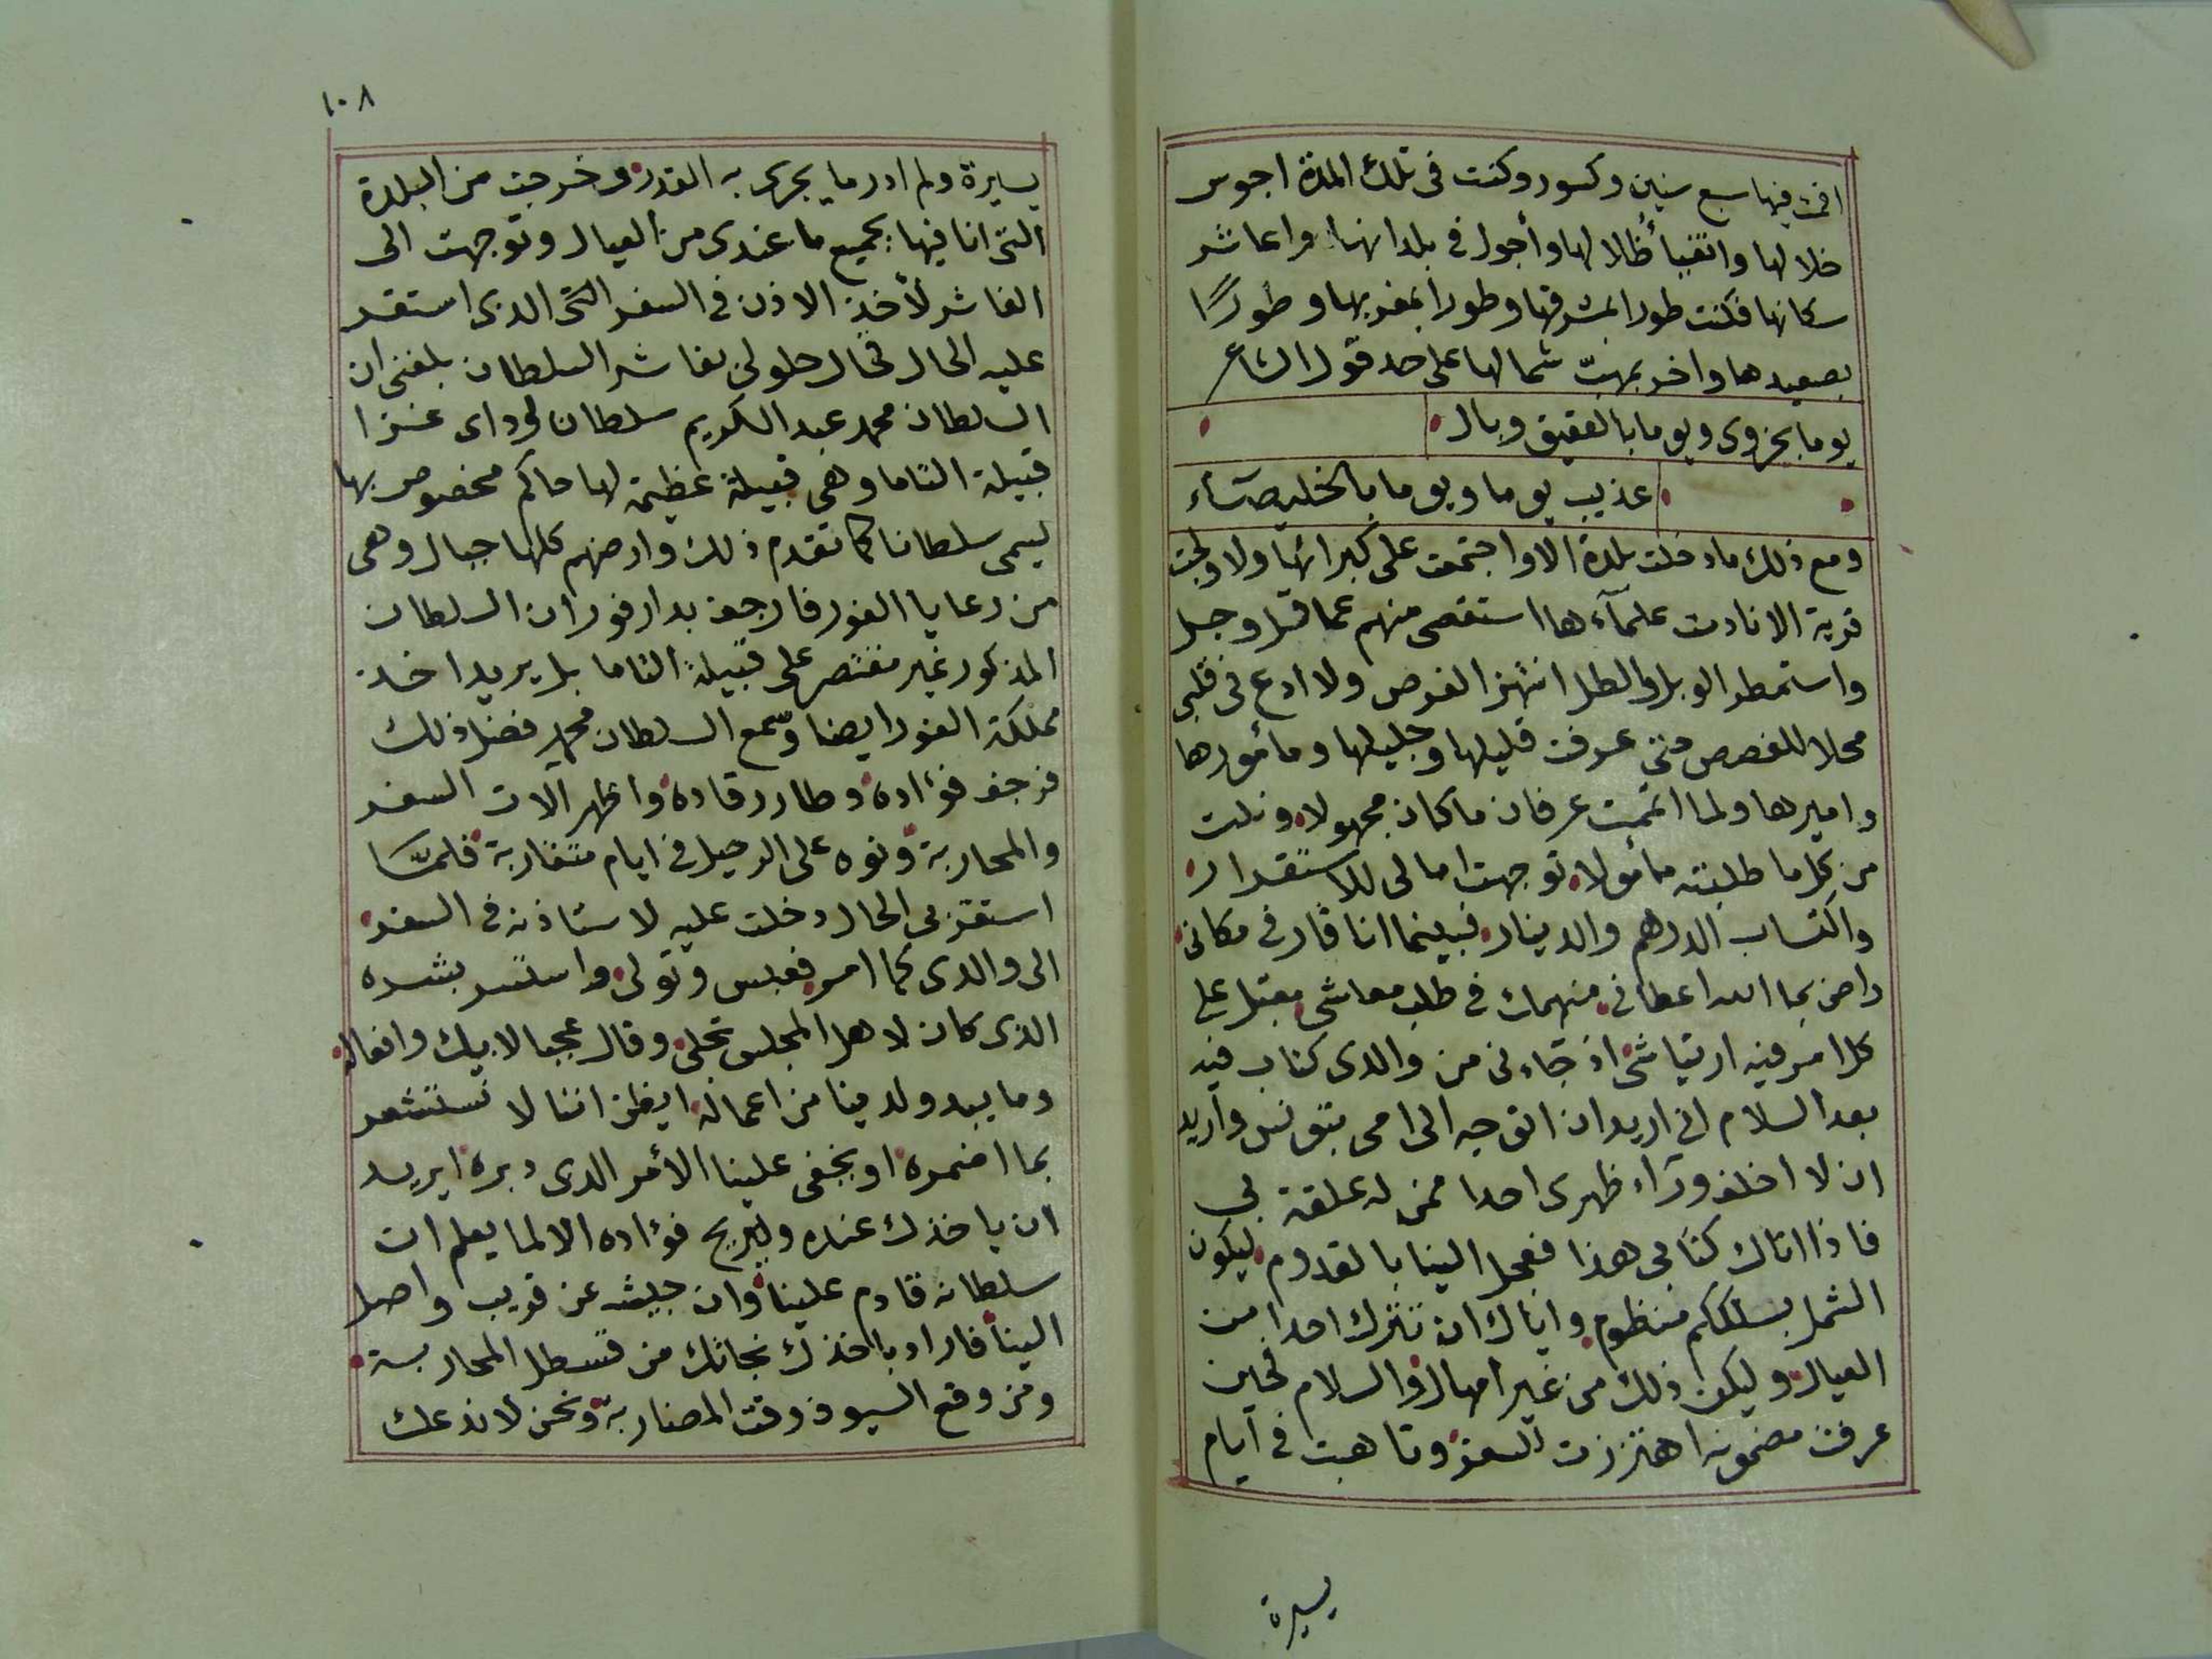 اقمت فيها سبع سنين وكسور وكنت فى تلك المدة اجوس
خلالها واتفيأ ظلالها وأجول فى بلدانها واعاشر
سكانها فكنت طورا بمشرقها وطورا بمغربها وطورًا
بصعيدها واخر بمهبّ شمالها على حد قول الشاعر
يوما بحزوى ويوما بالعقيق وبالـ
عذيب يوما ويوما بالخليصآء
ومع ذلك ما دخلت بلدة الا واجتمعت على كبرائها ولا ولجت
قرية الا نادمت علمآءها استقصى منهم عما قل وجل
واستمطر الوبل والطل انتهز الفرص ولا ادع فى قلبى
محلا للغصص حتى عرفت قليلها وجليلها ومأمورها
واميرها ولما اتممت عرفان ما كان مجهولا ونلت
من كل ما طلبته مأمولا توجهت امالى للاستقرار
واكتساب الدرهم والدينار فبينما انا قار فى مكانى
راض بما الله اعطانى منهمك فى طلب معاشى مقبل على
كل امر فيه ارتياشى اذ جاءنى من والدى كتاب فيه
بعد السلام انى اريد ان اتوجه الى امى بتونس واريد
ان لا اخلف ورآء ظهرى احدا ممن له علقة بى
فاذا اتاك كتابى هذا فعجل الينا بالقدوم ليكون
الشمل بسلككم منظوم واياك ان تترك احدا من
العيال وليكن ذلك من غير امهال والسلام فحين
عرفت مضمونه اهتززت للسفر وتاهبت فى ايام
يسيرة
١٠٨
يسيرة ولم ادر ما يجرى به القدر وخرجت من البلدة
التى انا فيها بجميع ما عندى من العيال وتوجهت الى
الفاشر لأخذ الاذن فى السفر الذى استقر
عليه الحال فحال حلولى بفاشر السلطان بلغنى ان
السلطان محمد عبد الكريم سلطان لوداى غزا
قبيلة التاما وهى قبيلة عظيمة لها حاكم مخصوص بها
يسمى سلطانا كما تقدم ذلك وارضهم كلها جبال وهى
من رعايا الفور فارجف بدارفور ان السلطان
المذكور غير مقتصر على قبيلة التاما بل يريد اخذ
مملكة الفور ايضا وسمع السلطان محمد فضل ذلك
فرجف فؤاده وطار رقاده واظهر آلات السفر
والمحاربة ونوه على الرحيل فى ايام متقاربة فلمّا
استقر بى الحال دخلت عليه لاستاذنه فى السفر
الى والدى كما امر فعبس وتولى واستسر بشره
الذى كان لاهل المجلس تجلى وقال عجبا لابيك وافعاله
وما يبدو لدينا من اعماله ايظن اننا لا نستشعر
بما اضمره او يخفى علينا الأمر الذى دبره ايريد
ان ياخذك عنده ويريح فؤاده الا لما يعلم ان
سلطانه قادم علينا وان جيشه عن قريب واصل
الينا فاراد باخذك نجاتك من قسطل المحاربة
ومن وقع السيوف وقت المضاربة ونحن لا ندعك